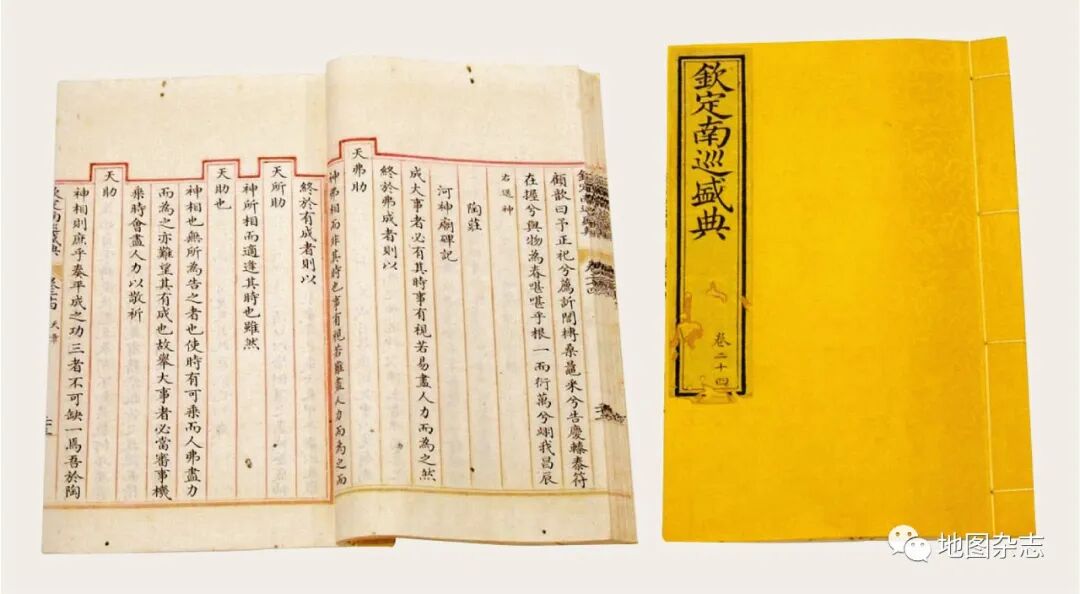 顧歆曰予正祀兮薦訢誾榑桑鼂采兮告慶轃泰符
在握兮與物為春乎根一而衍萬兮翊我昌辰
右送神
陶莊
河神廟碑記
成大事者必有其時事有視若易盡人力而為之然
終於弗成者則以
天弗助
神弗相而非其時也事有視若難盡人力而為之而
終於有成者則以
天所助
神所相而適逢其時也雖然
天助也
神相也無所為告之者也使時有可乘而人弗盡力
而為之亦難望其有成也故舉大事者必當審事機
乘時會盡人力以敬祈
天助
神相則庶乎奏平成之功三者不可缺一焉吾於陶
欽定南巡盛典
欽定南巡盛典
卷二十四
地图杂志